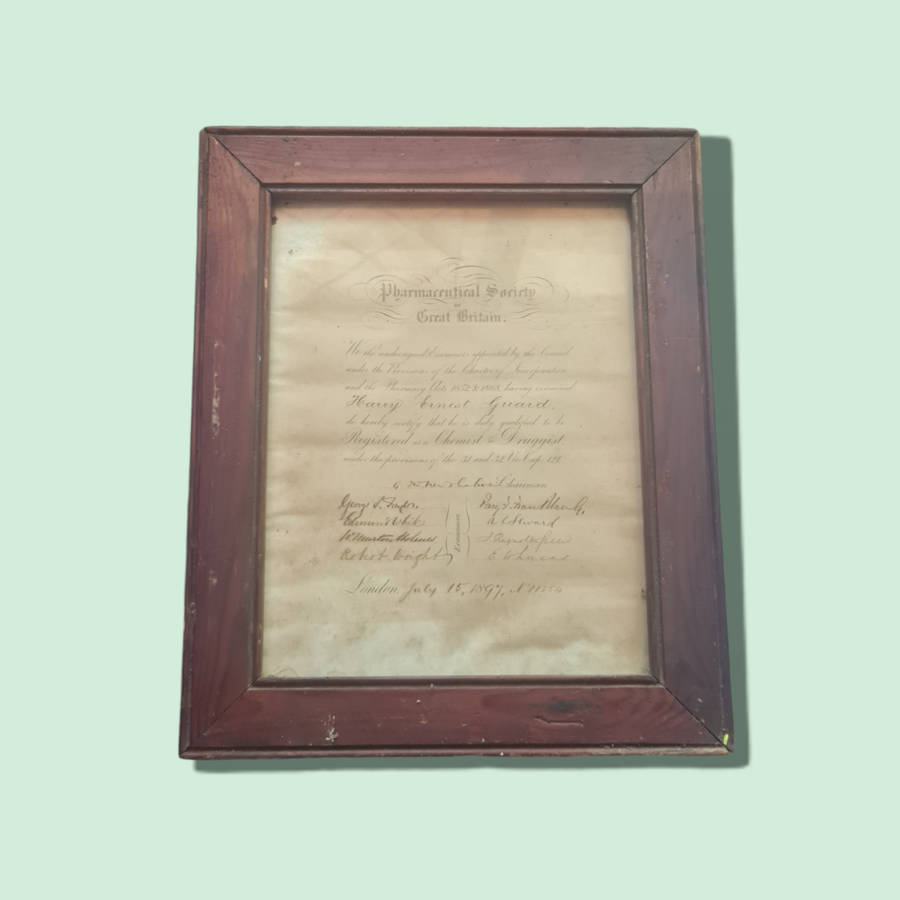 Pharmaceutical Society
OF
Great Britain.
We the undersigned Examiners appointed by the Council
under the Provisions of the Charter of Incorporation
and the Pharmacy Acts 1852 & 1868, having examined
Harry Ernest Guard,
do hereby certify that he is duly qualified to be
Registered as a Chemist & Druggist
under the provisions of the 31 and 32 Vic. Cap. 121
Chairman
Edmund White
Robert Wright
Examiners
London, July 15, 1897, N